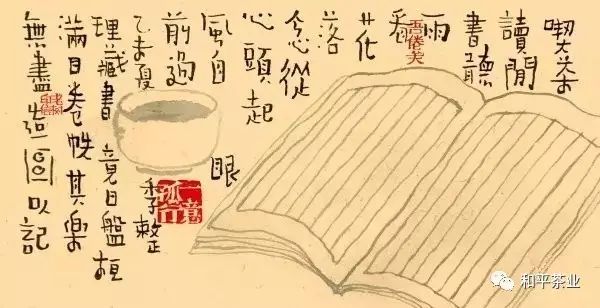 喫茶
讀閒
書聽
雨
看
花
落
念從
心頭起
風自眼
前過
乙未夏季整
理藏書竟日盤桓
滿目卷帙其樂
無盡造圖以記
一意孤行
和平茶业